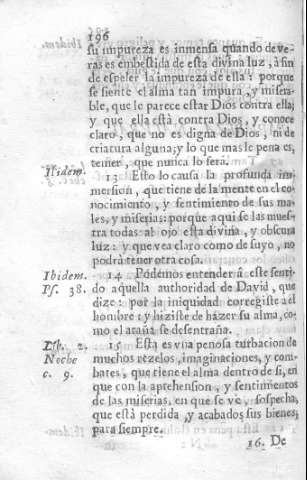 196
su impureza es inmensa quando de ve-
ras es embestida de esta divina luz, à fin
de espeler la impureza de ella: porque
se siente el alma tan impura, y misera-
ble, que le parece estar Dios contra ella;
y que ella està contra Dios, y conoce
claro, que no es digna de Dios, ni de
criatura alguna; y lo que mas le pena es,
temer, que nunca lo serà.
Ibidem. 13 Esto lo causa la profunda im-
mersion, que tiene de la mente en el co-
nocimiento, y sentimiento de sus ma-
les, y miserias: porque aqui se las mues-
tra todas al ojo esta divina, y obscura
luz: y que vea claro como de suyo, no
podrà tener otra cosa.
Ibidem. 14 Podemos entender à este senti-
Ps. 38. do aquella authoridad de David, que
dize: por la iniquidad corregiste al
hombre: y hiziste de hazer su alma, co-
mo el araña se desentraña.
Lib. 2. 15 Esta es vna penosa turbacion de
Noche muchos rezelos, imaginaciones, y com-
c. 9. bates, que tiene el alma dentro de si, en
que con la aprehension, y sentimientos
de las miserias, en que se ve, sospecha,
que està perdida, y acabados sus bienes
para siempre.
16. De